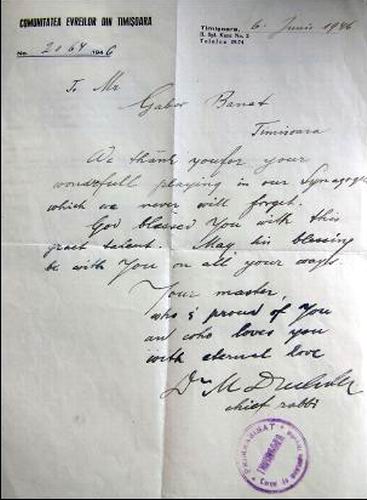 COMUNITATEA EVREILOR DIN TIMIŞOARA
No. 2064 1946
Timişoara, 6. Junie 1946
II. Spl. Kunz No. 2
Telefon
To Mr
Gabor Banat
Timisoara
We thank you for your
wonderfull playing in our Synagoge
which we never will forget.
God blessed You with this
great talent. May his blessing
be with You on all your ways.
Your master,
who's proud of You
and who loves you
with eternal love
Dr M Drechsler
chief rabbi